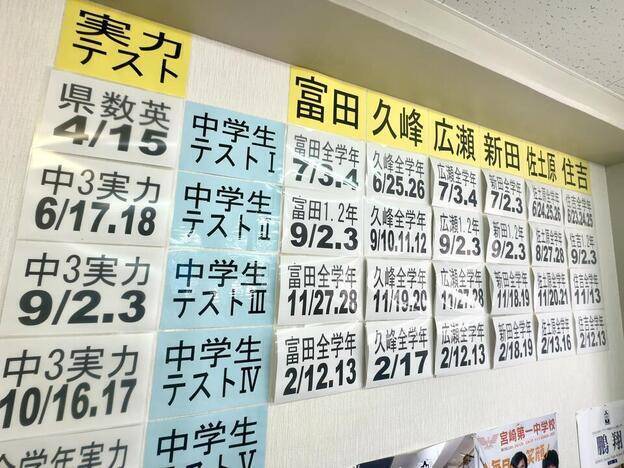 実力
テスト
県数英
4/15
中3実力
6/17.18
中3実力
9/2.3
中3実力
10/16.17
全学年実力
中学生
テストⅠ
中学生
テストⅡ
中学生
テストⅢ
中学生
テストⅣ
中学生
富田
久峰
広瀬
新田
佐土原
住吉
富田全学年
7/3.4
久峰全学年
6/25.26
広瀬全学年
7/3.4
新田全学年
7/2.3
佐土原全学年
6/24.25.26
住吉全学年
6/23.24.25
富田1.2年
9/2.3
久峰全学年
9/10.11.12
広瀬1.2年
9/2.3
新田1.2年
9/2.3
佐土原全学年
8/27.28
住吉1.2年
9/2.3
富田全学年
11/27.28
久峰全学年
11/19.20
広瀬全学年
11/27.28
新田全学年
11/18.19
佐土原全学年
11/20.21
住吉全学年
11/13
富田全学年
2/12.13
久峰全学年
2/17
広瀬全学年
2/12.13
新田全学年
2/18.19
佐土原全学年
2/13.16
住吉全学年
2/12.13
宮崎第一中学校
鵬翔